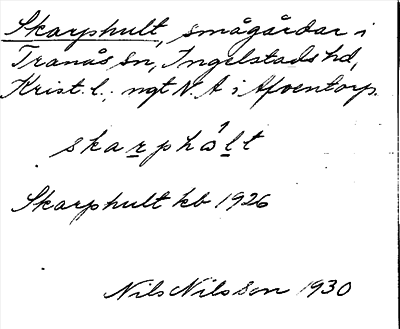 Skarphult, smågårdar i
Tranås sn, Ingelstads hd,
Krist. l., ngt N. A i
skarphålt
Skarphult kb 1926
Nils Nilsson 1930